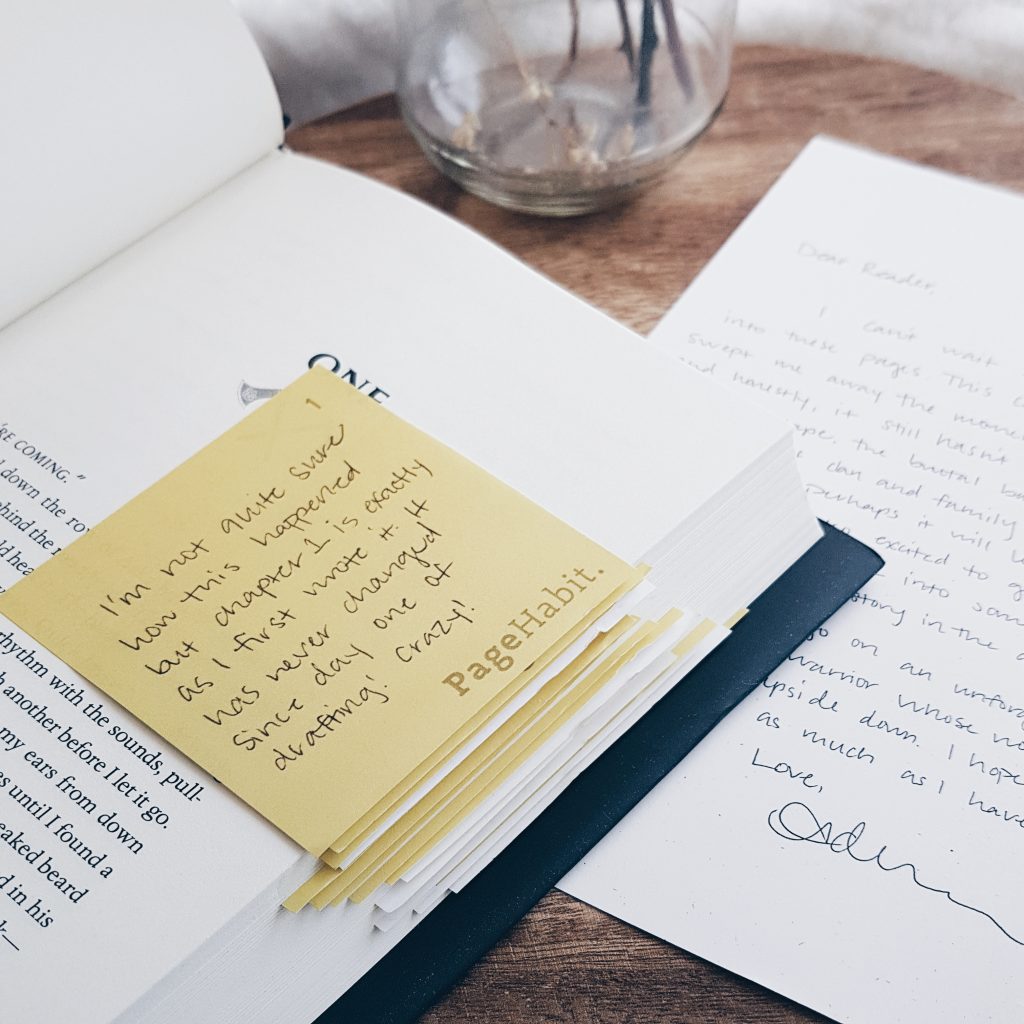 ONE
"...'RE COMING,"
down the roy
behind the r
ld hea
rhythm with the sounds, pull-
h another before I let it go.
my ears from down
es until I found a
eaked beard
d in his
k—
1
I'm not quite sure
how this happened
but chapter 1 is exactly
as I first wrote it. It
has never changed
since day one of
drafting! crazy!
PageHabit.
Dear Reader,
I can't wait
into these pages. This
swept me away the mome
and honestly, it still hasn't
ape, the brutal b
clan and family
perhaps it will
excited to g
into som
story in the
go on an unfor
warrior whose no
upside down. I hope
as much as I have
Love,